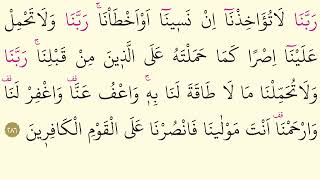 رَبَّنَا لَاتُؤَاخِذْنَٓا اِنْ نَسٖينَٓا اَوْاَخْطَأْنَاۚ رَبَّنَا وَلَاتَحْمِلْ
عَلَيْنَٓا اِصْرًا كَمَا حَمَلْتَهُ عَلَى الَّذٖينَ مِنْ قَبْلِنَاۚ رَبَّنَا
وَلَاتُحَمِّلْنَا مَا لَا طَاقَةَ لَنَا بِهٖۚ وَاعْفُ عَنَّاࣞ وَاغْفِرْ لَنَاࣞ
وَارْحَمْنَاࣞ اَنْتَ مَوْلٰينَا فَانْصُرْنَا عَلَى الْقَوْمِ الْكَافِرٖينَ ٢٨٦